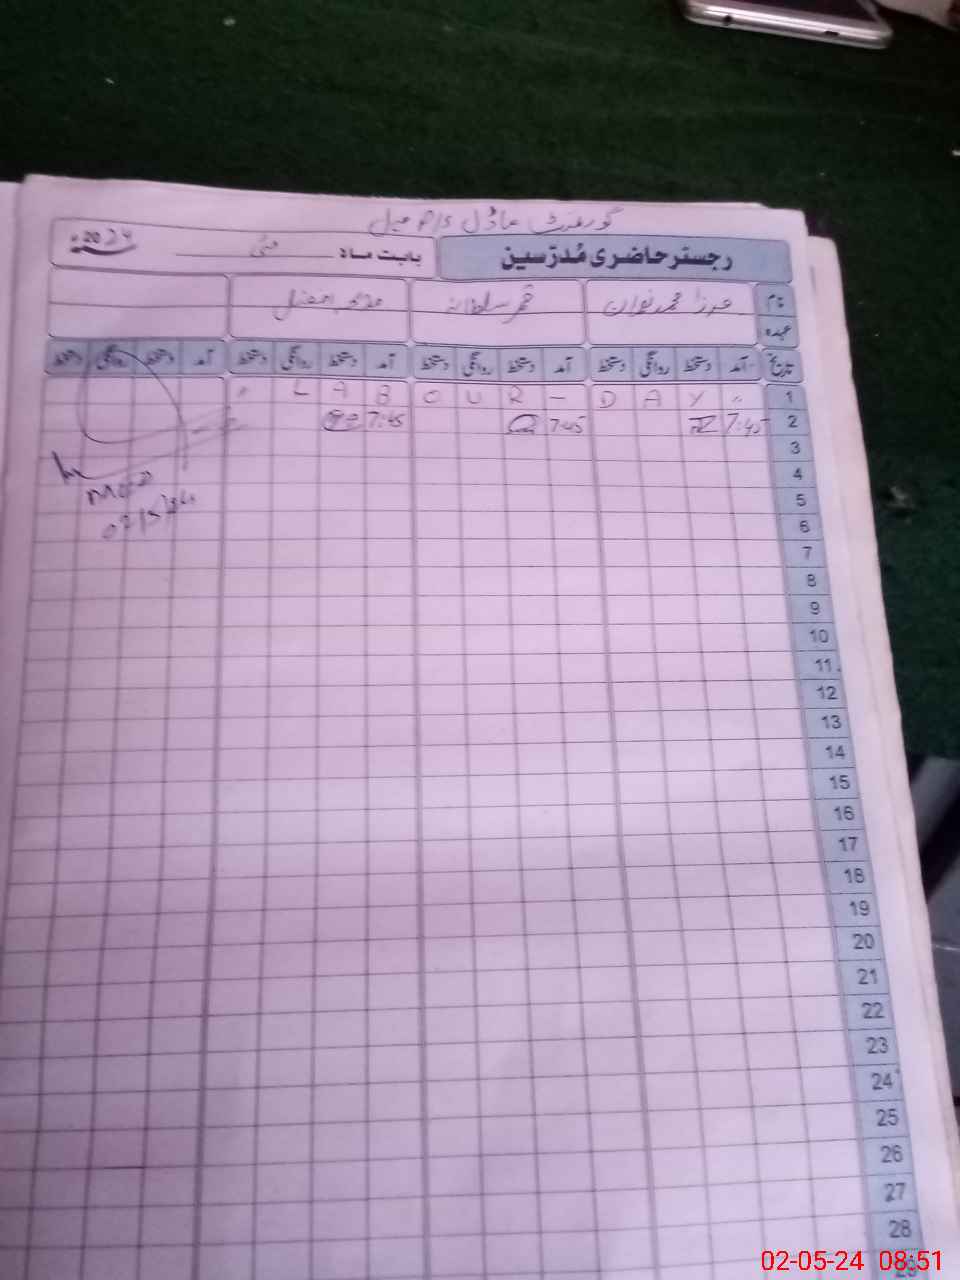 گورنمنٹ ماڈل P/S میل
رجسٹر حاضری مُدرّسین
بابت ماہ مئی 2024ء
نام مرزا محمد سلطانہ قمر مدیحہ افضل
عہدہ
تاریخ آمد دستخط روانگی دستخط آمد دستخط روانگی دستخط آمد دستخط روانگی دستخط آمد دستخط روانگی دستخط
1 " L A B O U R - D A Y "
2 7:45 7:45 7:45
3
4
5
6
7
8
9
10
11
12
13
14
15
16
17
18
19
20
21
22
23
24
25
26
27
28
29
02-05-24 08:51